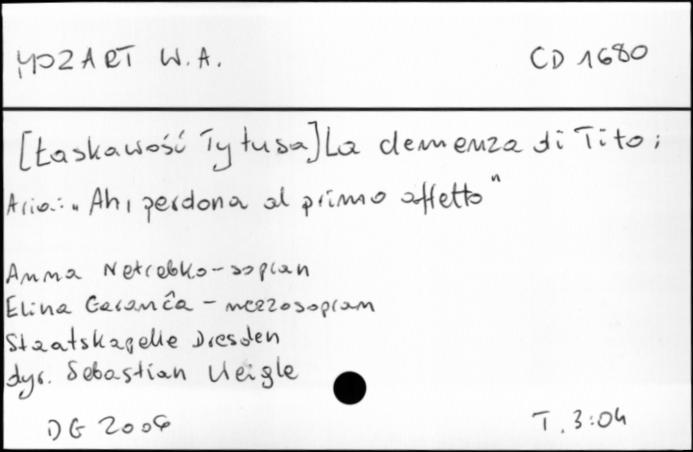 MOZART W.A. CD 1680
[Łaskawość Tytusa] La clemenza di Tito;
Aria: „Ah, perdona al primo affetto"
Anna Netrebko - sopran
Elina Garanča - mezzosopran
Staatskapelle Dresden
dyr. Sebastian Weigle
DG 2006 T. 3:04